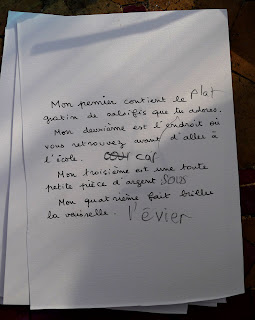 Mon premier contient le plat
gratin de salsifis que tu adores.
Mon deuxième est l'endroit où
vous retrouvez avant d'aller à
l'école. cour caf
Mon troisième est une toute
petite pièce d'argent sous
Mon quatrième fait briller
la vaisselle. l'évier